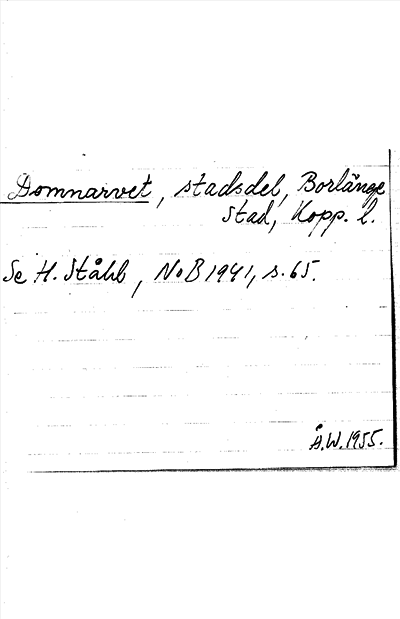 Domnarvet, stadsdel, Borlänge
stad, Kopp. l.
Se H. Ståhl, NoB 1941, s. 65.
Å.W. 1955.